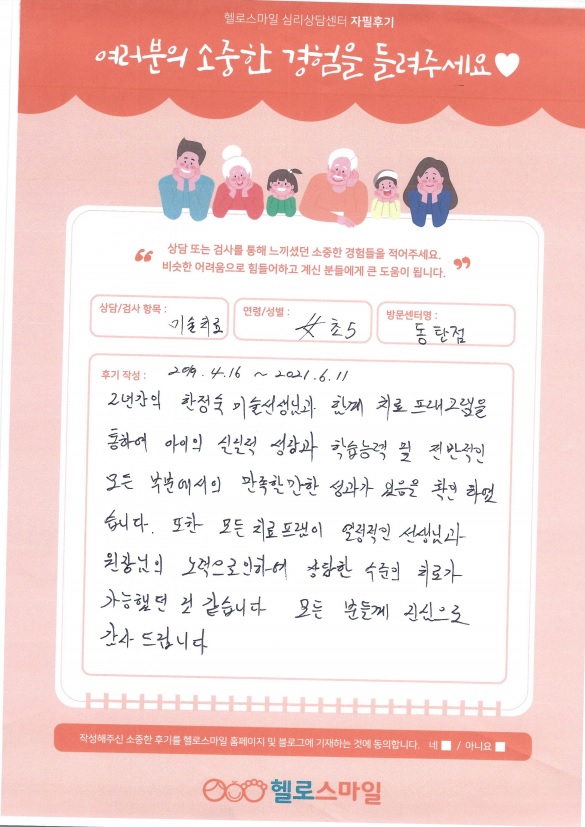 헬로스마일 심리상담센터 자필후기
여러분의 소중한 경험을 들려주세요
상담 또는 검사를 통해 느끼셨던 소중한 경험들을 적어주세요.
비슷한 어려움으로 힘들어하고 계신 분들에게 큰 도움이 됩니다.
상담/검사 항목 :
미술치료
연령/성별 :
女 초5
방문센터명 :
동탄점
후기 작성 : 2019. 4. 16 ~ 2021. 6. 11
2년간의 한정숙 미술선생님과 함께 치료 프로그램을
통하여 아이의 심실적 성장과 학습능력 및 전반적인
모든 부분에서의 만족할만한 성과가 있음을 확인 하였
습니다. 또한 모든 치료 프램이 열정적인 선생님과
원장님의 노력으로인하여 상담한 수준의 치료가
가능했던 것 같습니다 모든 분들께 진심으로
감사 드립니다
작성해주신 소중한 후기를 헬로스마일 홈페이지 및 블로그에 기재하는 것에 동의합니다. 네 / 아니요
헬로스마일